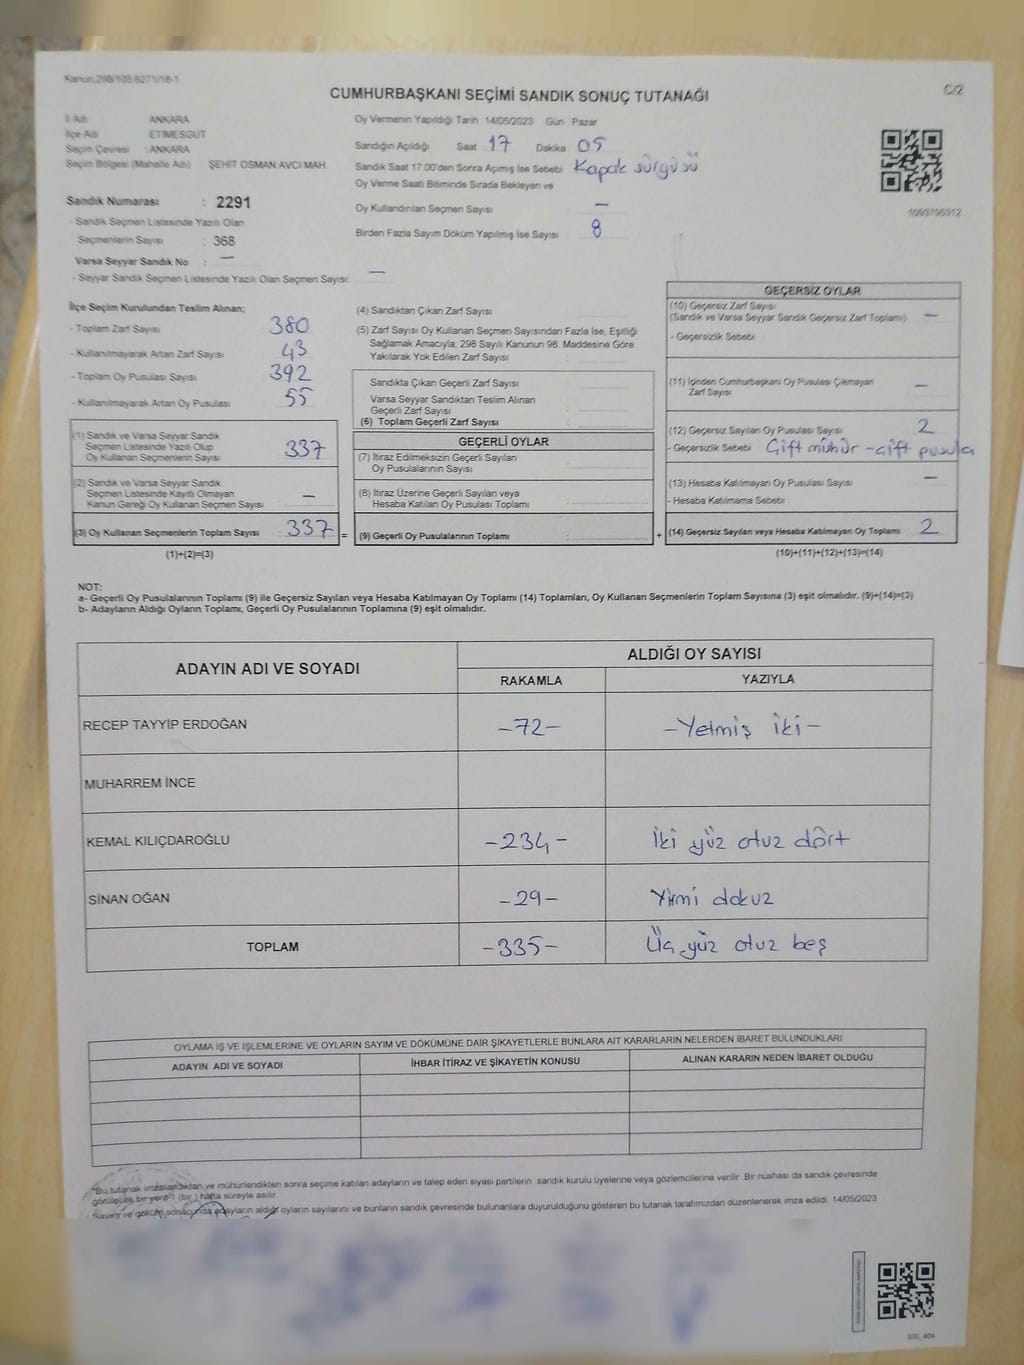 Kanun:298/105,6271/18-1
C/2
CUMHURBAŞKANI SEÇİMİ SANDIK SONUÇ TUTANAĞI
İl Adı ANKARA
İlçe Adı ETİMESGUT
Seçim Çevresi : ANKARA
Seçim Bölgesi (Mahalle Adı) ŞEHİT OSMAN AVCI MAH.
Sandık Numarası : 2291
- Sandık Seçmen Listesinde Yazılı Olan
Seçmenlerin Sayısı : 368
Varsa Seyyar Sandık No : —
- Seyyar Sandık Seçmen Listesinde Yazılı Olan Seçmen Sayısı —
Oy Vermenin Yapıldığı Tarih 14/05/2023 Gün Pazar
Sandığın Açıldığı Saat 17 Dakika 05
Sandık Saat 17.00'den Sonra Açılmış İse Sebebi Kapak sürgüsü
Oy Verme Saati Bitiminde Sırada Bekleyen ve
Oy Kullandırılan Seçmen Sayısı —
Birden Fazla Sayım Döküm Yapılmış İse Sayısı 8
1093795312
İlçe Seçim Kurulundan Teslim Alınan;
- Toplam Zarf Sayısı 380
- Kullanılmayarak Artan Zarf Sayısı 43
- Toplam Oy Pusulası Sayısı 392
- Kullanılmayarak Artan Oy Pusulası 55
(1) Sandık ve Varsa Seyyar Sandık
Seçmen Listesinde Yazılı Olup
Oy Kullanan Seçmenlerin Sayısı 337
(2) Sandık ve Varsa Seyyar Sandık
Seçmen Listesinde Kayıtlı Olmayan
Kanun Gereği Oy Kullanan Seçmen Sayısı —
(3) Oy Kullanan Seçmenlerin Toplam Sayısı 337 =
(1)+(2)=(3)
(4) Sandıktan Çıkan Zarf Sayısı
(5) Zarf Sayısı Oy Kullanan Seçmen Sayısından Fazla İse, Eşitliği
Sağlamak Amacıyla, 298 Sayılı Kanunun 98. Maddesine Göre
Yakılarak Yok Edilen Zarf Sayısı :
Sandıkta Çıkan Geçerli Zarf Sayısı
Varsa Seyyar Sandıktan Teslim Alınan
Geçerli Zarf Sayısı :
(6) Toplam Geçerli Zarf Sayısı :
GEÇERLİ OYLAR
(7) İtiraz Edilmeksizin Geçerli Sayılan
Oy Pusulalarının Sayısı :
(8) İtiraz Üzerine Geçerli Sayılan veya
Hesaba Katılan Oy Pusulası Toplamı :
(9) Geçerli Oy Pusulalarının Toplamı : +
GEÇERSİZ OYLAR
(10) Geçersiz Zarf Sayısı
(Sandık ve Varsa Seyyar Sandık Geçersiz Zarf Toplamı) —
- Geçersizlik Sebebi
(11) İçinden Cumhurbaşkanı Oy Pusulası Çıkmayan
Zarf Sayısı —
(12) Geçersiz Sayılan Oy Pusulası Sayısı 2
- Geçersizlik Sebebi Çift mühür - çift pusula
(13) Hesaba Katılmayan Oy Pusulası Sayısı —
- Hesaba Katılmama Sebebi
(14) Geçersiz Sayılan veya Hesaba Katılmayan Oy Toplamı 2
(10)+(11)+(12)+(13)=(14)
NOT:
a- Geçerli Oy Pusulalarının Toplamı (9) ile Geçersiz Sayılan veya Hesaba Katılmayan Oy Toplamı (14) Toplamları, Oy Kullanan Seçmenlerin Toplam Sayısına (3) eşit olmalıdır. (9)+(14)=(3)
b- Adayların Aldığı Oyların Toplamı, Geçerli Oy Pusulalarının Toplamına (9) eşit olmalıdır.
ADAYIN ADI VE SOYADI ALDIĞI OY SAYISI
RAKAMLA YAZIYLA
RECEP TAYYİP ERDOĞAN -72- -Yetmiş iki-
MUHARREM İNCE
KEMAL KILIÇDAROĞLU -234- İki yüz otuz dört
SİNAN OĞAN -29- Yirmi dokuz
TOPLAM -335- Üç yüz otuz beş
OYLAMA İŞ VE İŞLEMLERİNE VE OYLARIN SAYIM VE DÖKÜMÜNE DAİR ŞİKAYETLERLE BUNLARA AİT KARARLARIN NELERDEN İBARET BULUNDUKLARI
ADAYIN ADI VE SOYADI İHBAR İTİRAZ VE ŞİKAYETİN KONUSU ALINAN KARARIN NEDEN İBARET OLDUĞU
"Bu tutanak imzalandıktan ve mühürlendikten sonra seçime katılan adayların ve talep eden siyasi partilerin sandık kurulu üyelerine veya gözlemcilerine verilir. Bir nüshası da sandık çevresinde
görülecek bir yere 1 (bir) hafta süreyle asılır.
Sayım ve döküm sonucunda adayların aldığı oyların sayılarını ve bunların sandık çevresinde bulunanlara duyurulduğunu gösteren bu tutanak tarafımızdan düzenlenerek imza edildi. 14/05/2023